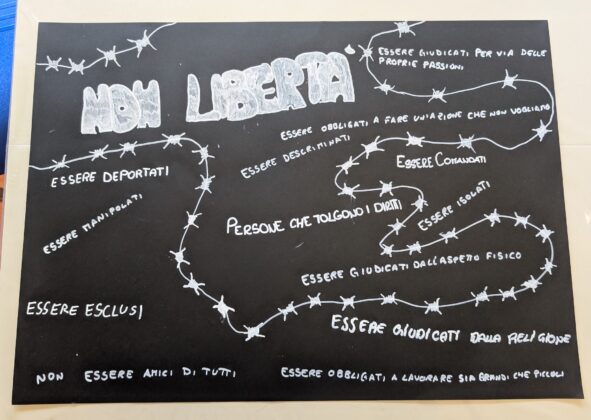 NON LIBERTÀ
ESSERE GIUDICATI PER VIA DELLE
PROPRIE PASSIONI
ESSERE OBBLIGATI A FARE UN'AZIONE CHE NON VOGLIAMO
ESSERE DESCRIMINATI
ESSERE COMANDATI
ESSERE DEPORTATI
ESSERE MANIPOLATI
PERSONE CHE TOLGONO I DIRITTI
ESSERE ISOLATI
ESSERE GIUDICATI DALL'ASPETTO FISICO
ESSERE ESCLUSI
ESSERE GIUDICATI DALLA RELIGIONE
NON ESSERE AMICI DI TUTTI
ESSERE OBBLIGATI A LAVORARE SIA GRANDI CHE PICCOLI